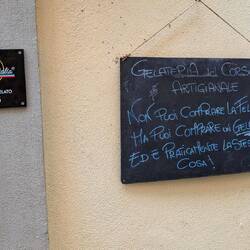 GELATERIA del CORSO
ARTIGIANALE
NON PUOI COMPRARE LA FEL
MA PUOI COMPRARE UN GEL
ED E PRATICAMENTE LA STES
COSA!
ELATO